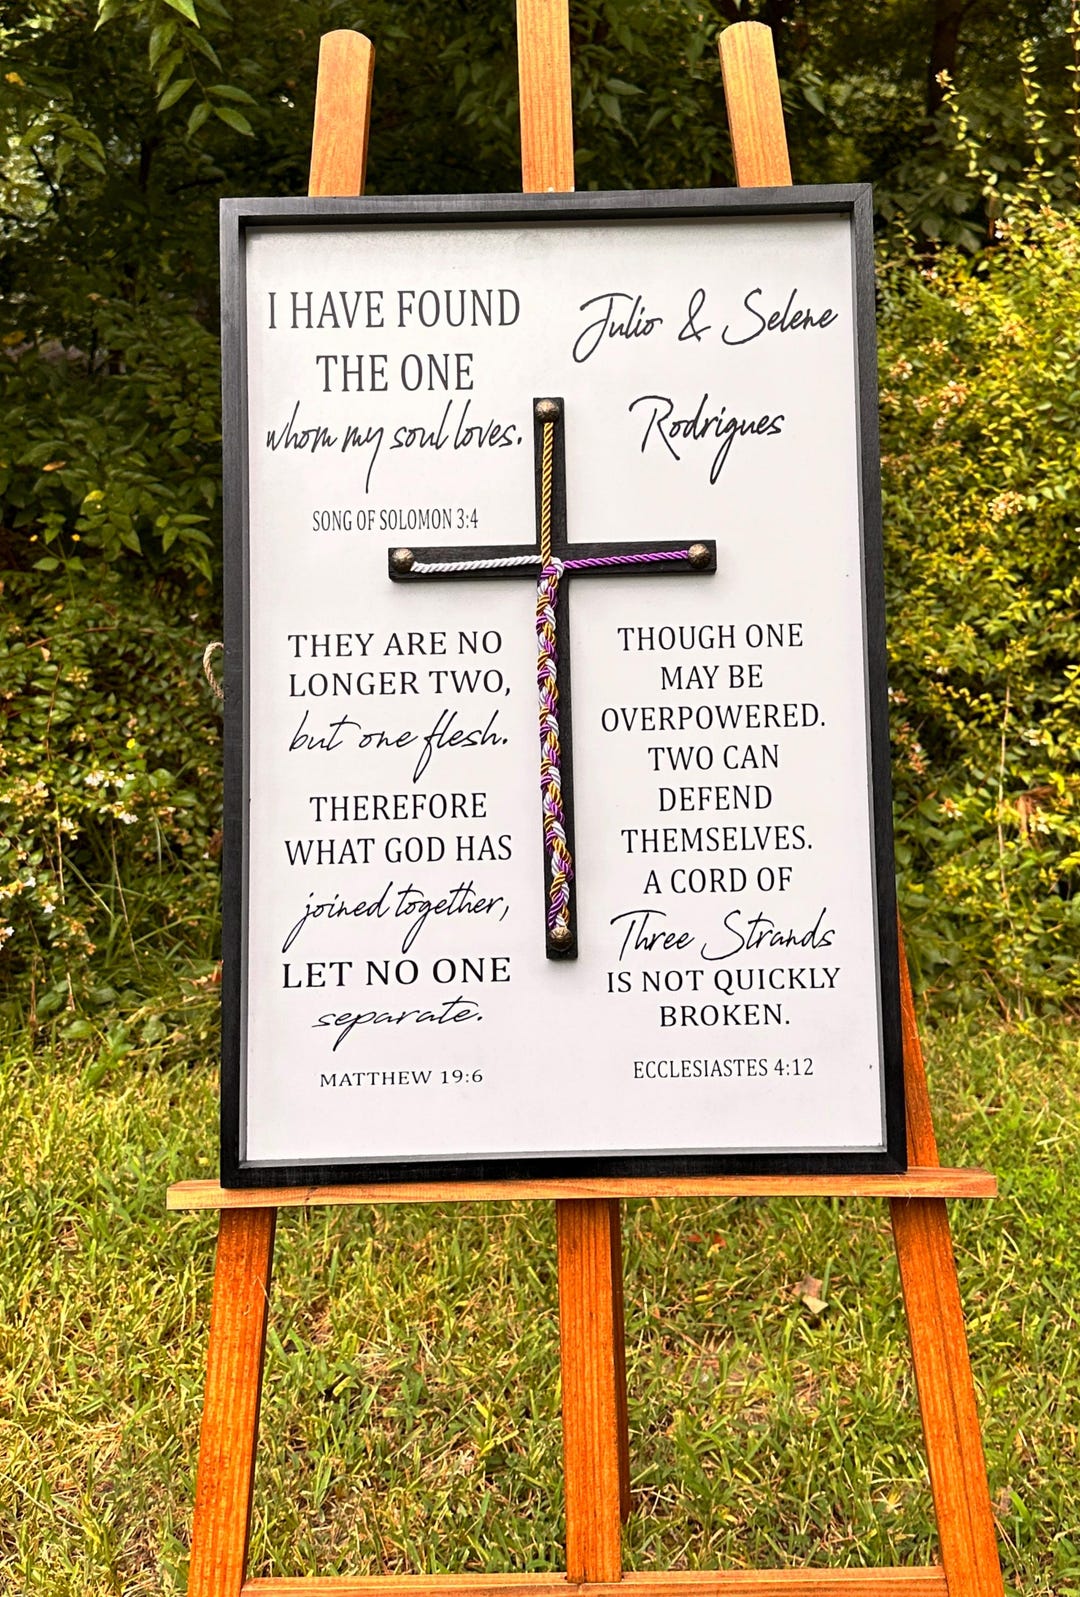 I HAVE FOUND
THE ONE
whom my soul loves.
SONG OF SOLOMON 3:4
Julio & Selene
Rodrigues
THEY ARE NO
LONGER TWO,
but one flesh.
THEREFORE
WHAT GOD HAS
joined together,
LET NO ONE
separate.
MATTHEW 19:6
THOUGH ONE
MAY BE
OVERPOWERED.
TWO CAN
DEFEND
THEMSELVES.
A CORD OF
Three Strands
IS NOT QUICKLY
BROKEN.
ECCLESIASTES 4:12